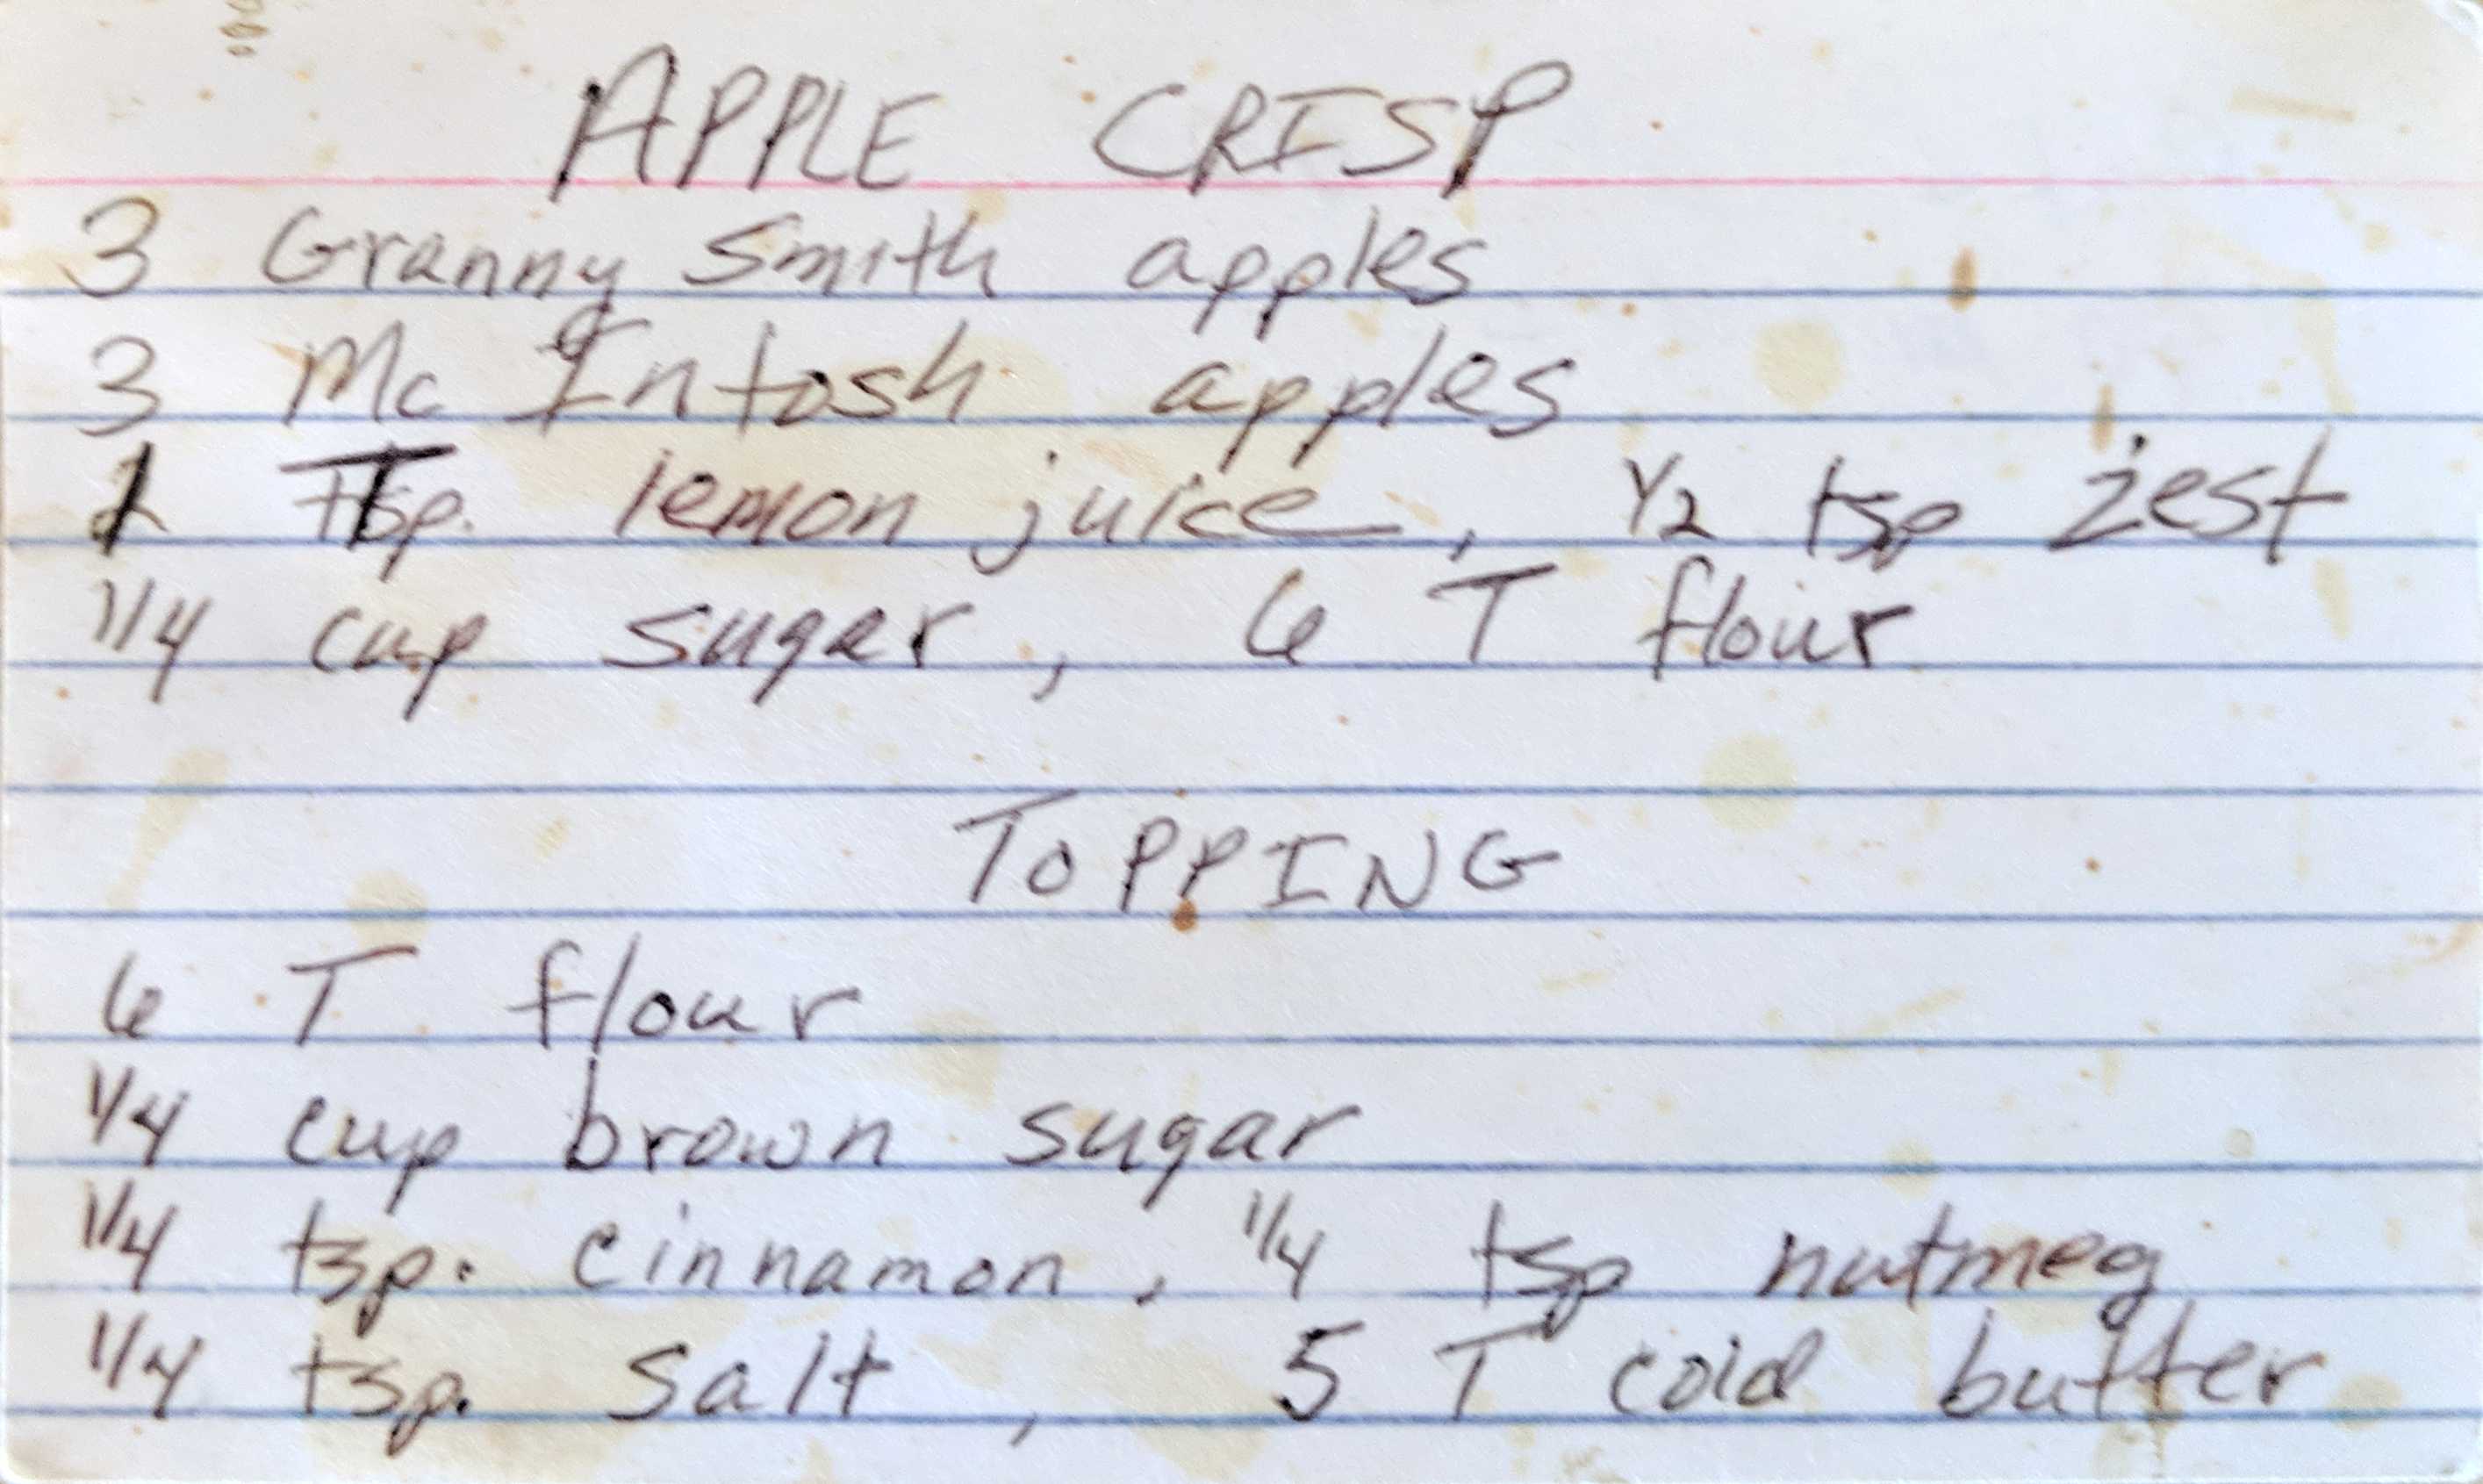 APPLE CRISP
3 Granny Smith apples
3 Mc Intosh apples
1 Tsp. lemon juice, 1/2 tsp zest
1/4 cup sugar, 6 T flour
TOPPING
6 T flour
1/4 cup brown sugar
1/4 tsp. cinnamon, 1/4 tsp nutmeg
1/4 tsp. salt, 5 T cold butter